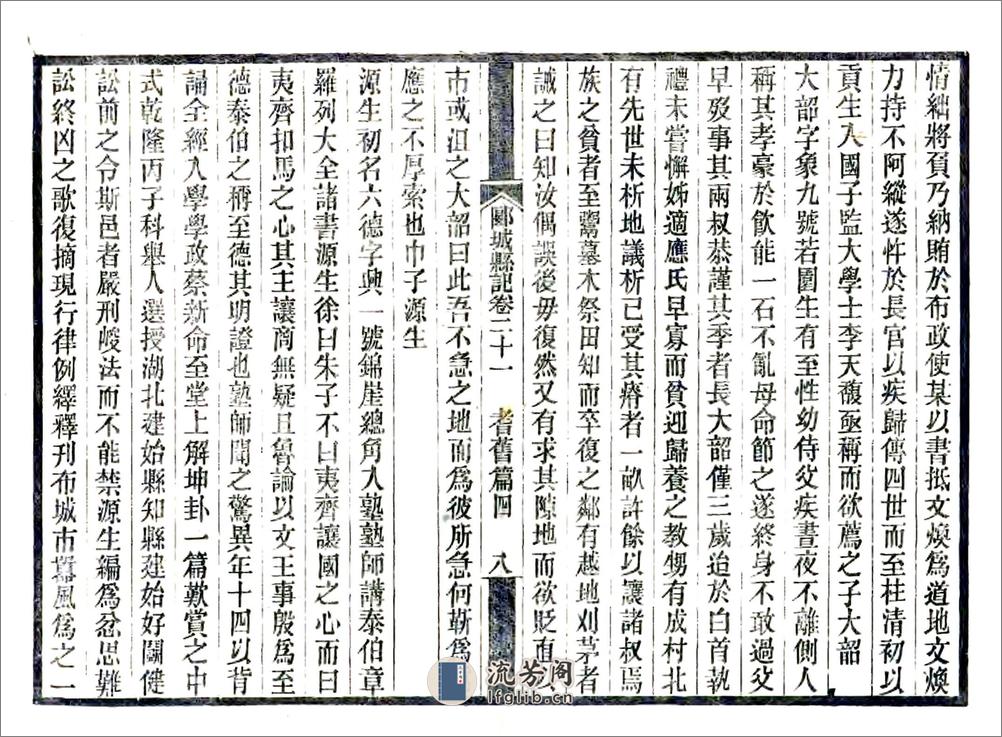 情絀將頁乃納賄於布政使某以書抵文煥爲道地文煥
力持不阿縱遂忤於長官以疾歸傳四世而至柱清初以
貢生入國子監大學士李天馥亟稱而欲薦之子大韶
大韶字象九號若圃生有至性幼侍父疾晝夜不離側人
稱其孝豪於飮能一石不亂母命節之遂終身不敢過父
早歿事其兩叔恭謹其季者長大韶僅三歲迨於白首執
禮未嘗懈姊適應氏早寡而貧迎歸養之教甥有成村北
有先世未析地議析己受其瘠者一畝許餘以讓諸叔焉
族之貧者至鬻墓木祭田知而卒復之鄰有越地刈茅者
誡之曰知汝偶誤後毋復然又有求其隙地而欲貶直
市或沮之大韶曰此吾不急之地而爲彼所急何靳爲
應之不厚索也巾子源生
郾城縣記卷二十一 耆舊篇四 八
源生初名六德字典一號錦崖總角入塾塾師講泰伯章
羅列大全諸書源生徐曰朱子不曰夷齊讓國之心而曰
夷齊扣馬之心其主讓商無疑且魯論以文王事殷爲至
德泰伯之稱至德其明證也塾師聞之驚異年十四以背
誦全經入學學政蔡新命至堂上解坤卦一篇歎賞之中
式乾隆丙子科舉人選授湖北建始縣知縣建始好鬭健
訟前之令斯邑者嚴刑峻法而不能禁源生編爲忿思難
訟終凶之歌復摘現行律例繹釋刊布城市囂風爲之一
流芳阁
lfglib.cn